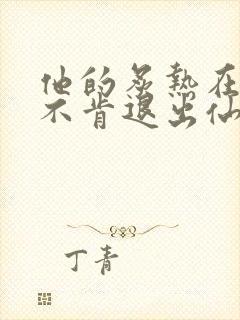 他的炙热在
不肯退出仙
丁青